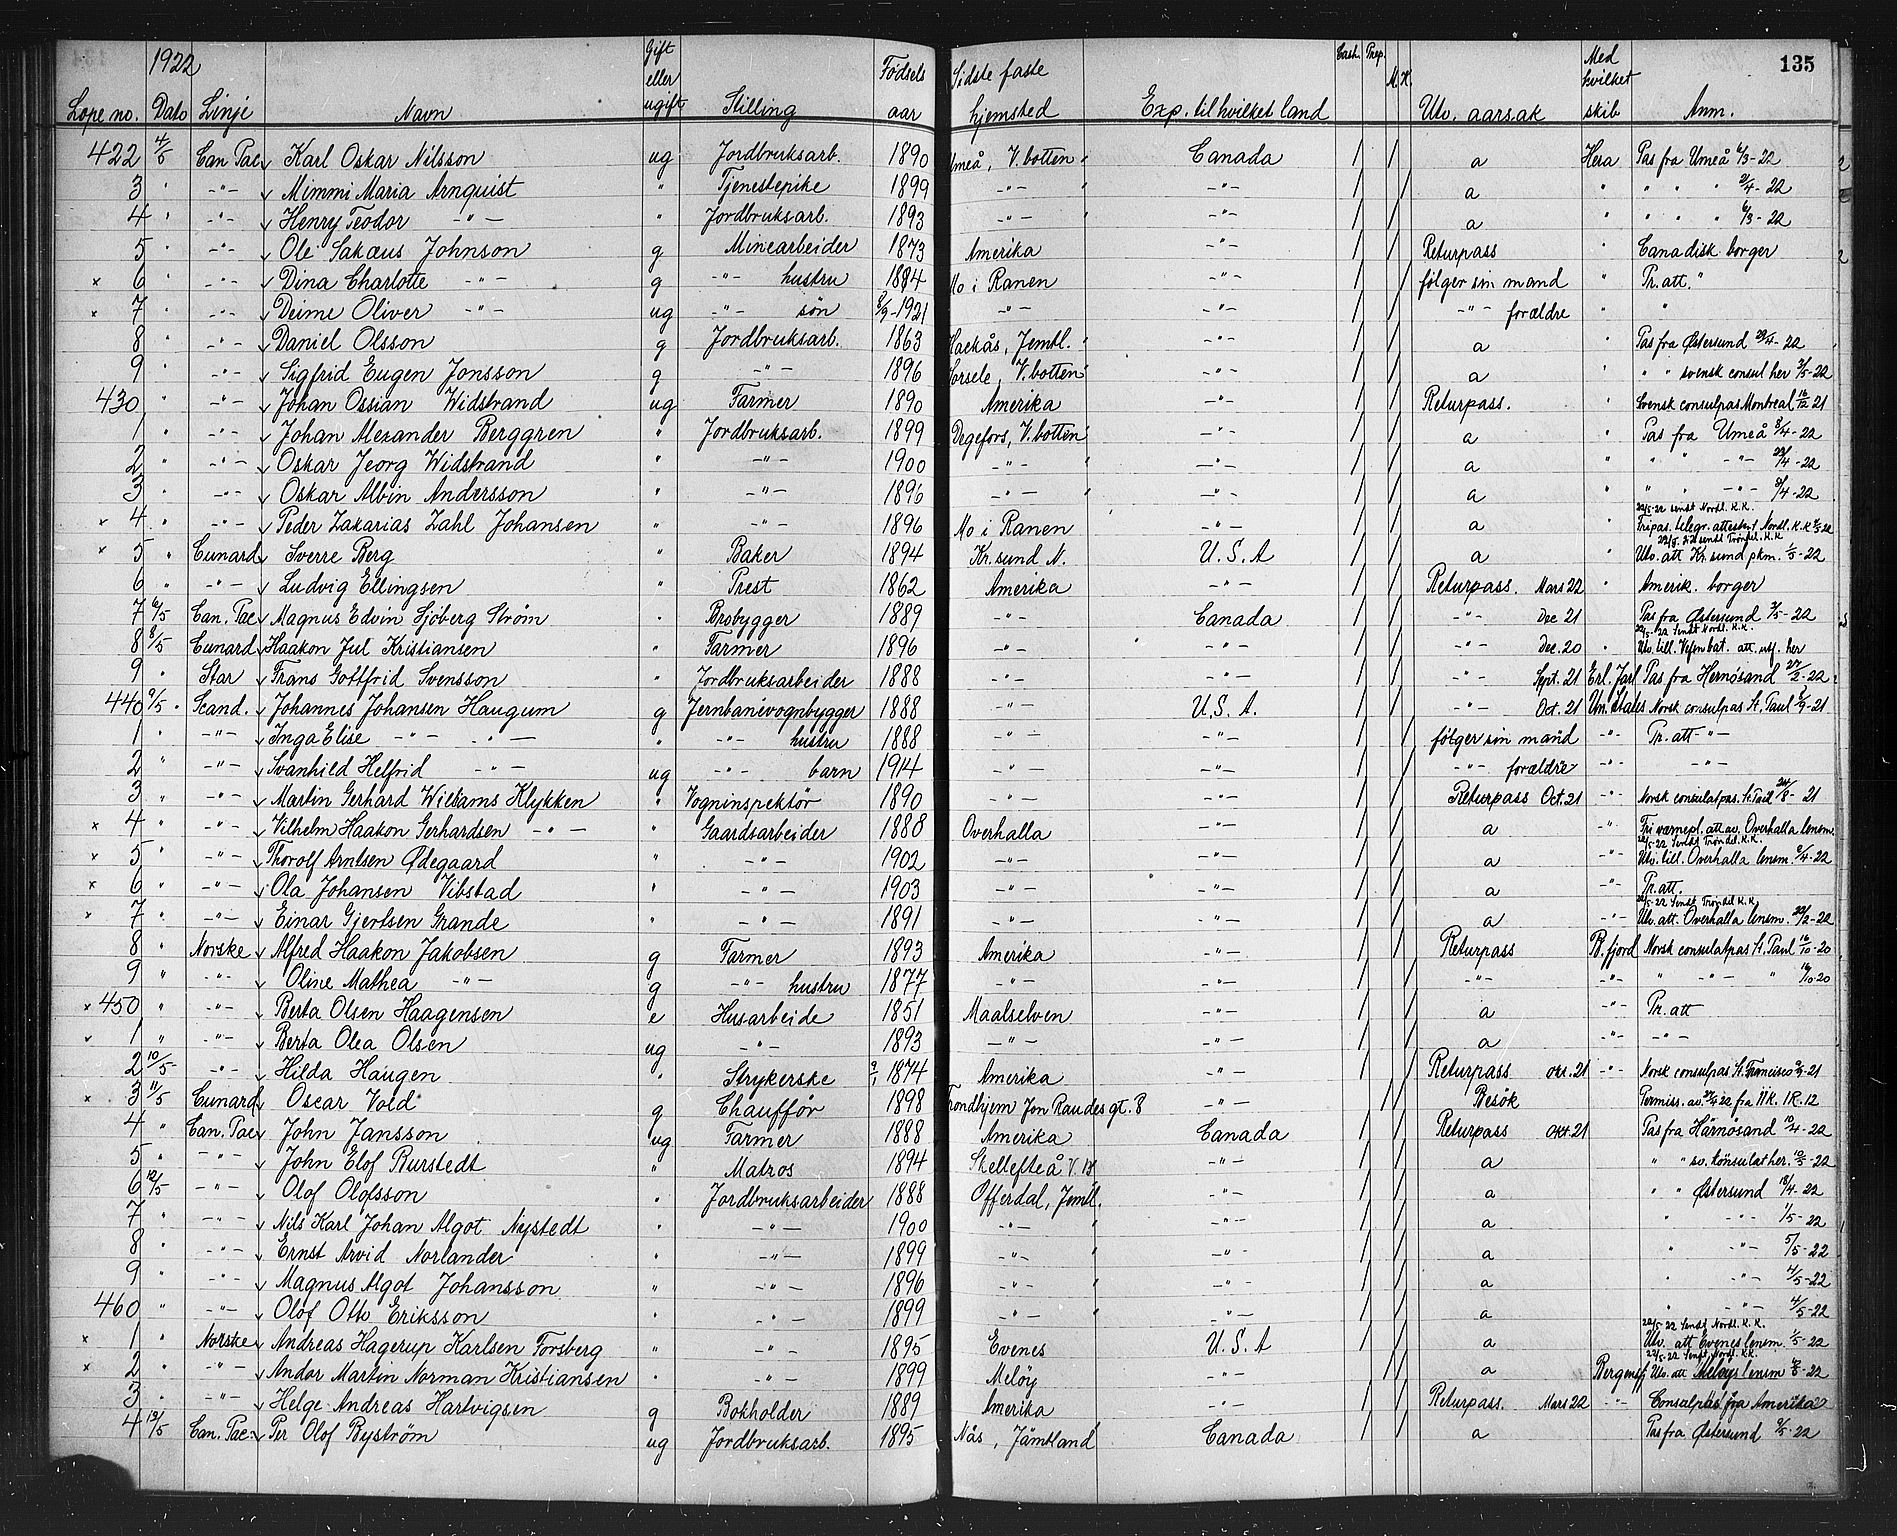 1922 Gift Fødsels Sidste faste Cash. Prep. Med 135
eller M. K. hvilket
Løpe no. Dato Linje Navn ugift Stilling aar hjemsted Exp. til hvilket land Utv. aarsak skib Anm.
422 4/5 Can Pac Karl Oskar Nilsson ug Jordbruksarb. 1890 Umeå, V. botten Canada a Hera Pas fra Umeå 6/3-22
3 " -"- Mimmi Maria Arnquist " Tjenestepike 1899 -"- " -"- a " " " " 2/4-22
4 " -"- Henry Teodor -"- " Jordbruksarb. 1893 -"- " -"- a " " " " 6/3-22
5 " -"- Ole Sakæus Johnson g Minearbeider 1873 Amerika -"- Returpass " Canadisk borger
x 6 " -"- Dina Charlotte -"- g -"- hustru 1884 Mo i Ranen -"- følger sin mand " Pr. att. "
x 7 " -"- Deime Oliver -"- ug -"- søn 8/9-1921 -"- -"- -"- forældre " "
8 " -"- Daniel Olsson g Jordbruksarb. 1863 Hackås, Jemtl. " -"- a " Pas fra Østersund 28/4-22
9 " -"- Sigfrid Eugen Jonsson g -"- 1896 Sorsele, V. botten -"- a " " " svensk consul her 3/5-22
430 " -"- Johan Ossian Widstrand ug Farmer 1890 Amerika -"- Returpass. " Svensk consulpas Montreal 16/12 21
1 " -"- Johan Alexander Berggren " Jordbruksarb. 1899 Degefors, V. botten -"- a " Pas fra Umeå 8/4-22
2 " -"- Oskar Jeorg Widstrand " -"- 1900 -"- " -"- a " " " -"- 23/4-22
3 " -"- Oskar Albin Andersson " -"- 1896 -"- " -"- a " " " -"- 8/4-22
22/5-22 sendt Nordl. K.K.
x 4 " -"- Peder Zakarias Zahl Johansen " -"- 1896 Mo i Ranen -"- a " Fripas. telegr. attestert Nordl. K.K 2/5-22
22/5. 22 sendt Trøndel. K.K
x 5 " Cunard Sverre Berg " Baker 1894 Kr.sund N. U.S.A a " Utv. att Kr.sund pkm. 1/5-22
6 " -"- Ludvig Ellingsen " Prest 1862 Amerika -"- Returpass. Mars 22 " Amerik. borger
7 6/5 Can. Pac Magnus Edvin Sjöberg Strøm " Brobygger 1889 -"- Canada -"- Dec 21 Pas fra Østersund 3/5-22
22/5-22 Sendt Nordl. K.K.
8 8/5 Cunard Haakon Jul Kristiansen " Farmer 1896 -"- " -"- -"- Dec. 20 " Utv. till. Vefsn bat. att. utf. her
9 " Star Frans Gottfrid Svensson " Jordbruksarbeider 1888 -"- -"- -"- Sept. 21 Erl. Jarl Pas fra Hernösand 27/2-22
440 9/5 Scand. Johannes Johansen Haugum g Jernbanevognbygger 1888 -"- U.S.A. -"- Oct. 21 Un. States Norsk consulpas St. Paul 6/9-21
1 " -"- Inga Elise -"- -"- " -"- hustru 1888 -"- -"- følger sin mand -"- Pr. att -"-
2 " -"- Svanhild Helfrid -"- ug -"- barn 1914 -"- -"- -"- forældre -"- -"-
3 " -"- Martin Gerhard Williams Klykken " Vogninspektör 1890 -"- -"- Returpass Oct. 21 -"- Norsk consulatpas. St. Paul 24/8-21
x 4 " -"- Vilhelm Haakon Gerhardsen -"- " Gaardsarbeider 1888 Overhalla -"- a -"- Friværnepl. att av. Overhalla lensm.
22/5-22 Sendt Trøndel. K.K.
x 5 " -"- Thorolf Arntsen Ødegaard " -"- 1902 -"- -"- a -"- Utv. till. Overhalla lensm. 6/4-22
x 6 " -"- Ola Johansen Vibstad " -"- 1903 -"- -"- a -"- Pr. att.
22/5-22 Sendt Trøndel K.K.
x 7 " -"- Einar Gjertsen Grande " -"- 1891 -"- -"- a -"- Utv. att. Overhalla lensm. 22/2-22
8 " Norske Alfred Haakon Jakobsen g Farmer 1893 Amerika -"- Returpass B. fjord Norsk consulatpas St. Paul 16/10-20
9 " -"- Oline Mathea -"- g -"- hustru 1877 -"- -"- -"- -"- " -"- " 16/10-20
x 450 " -"- Berta Olsen Haagensen e Husarbeide 1851 Maalselven -"- a -"- Pr. att
x 1 " -"- Berta Olea Olsen ug -"- 1893 -"- -"- a -"- -"-
2 10/5 -"- Hilda Haugen " Strykerske 1874 Amerika -"- Returpass okt. 21 -"- Norsk consulpas St. Francisco 2/9-21
x 3 11/5 Cunard Oscar Vold g Chauffør 1898 Trondhjem Jon Raudes gt. 8 -"- Besök Permiss. av 27/4 22 fra NK. IR. 12
4 " Can. Pac John Jansson ug Farmer 1888 Amerika Canada Returpass okt. 21 Pas fra Härnösand 10/4-22
5 " -"- John Elof Burstedt " Matros 1894 Skellefteå V.B -"- a " " sv. konsulat her. 10/5-22
6 12/5 -"- Olof Olofsson " Jordbruksarbeider 1888 Offerdal, Jemtl. -"- a " " Østersund 18/4-22
7 " -"- Nils Karl Johan Algot Nystedt " -"- 1900 -"- " -"- a " -"- 1/5-22
8 " -"- Ernst Arvid Norlander " -"- 1899 -"- " -"- a " -"- 5/5-22
9 " -"- Magnus Algot Johansson " -"- 1896 -"- " -"- a " -"- 4/5-22
460 " -"- Olof Otto Eriksson " -"- 1899 -"- " -"- a " -"- 4/5-22
22/5-22 Sendt Nordl. K.K.
x 1 " Norske Andreas Hagerup Karlsen Forsberg " -"- 1895 Evenes U.S.A a Utv. att Evenes lensm. 1/5-22
22/5-22 Sendt. Nordl. K.K.
x 2 " -"- Andor Martin Norman Kristiansen " -"- 1899 Meløy a Bergensfj Utv. att Meløys lensm -22
3 " -"- Helge Andreas Hartvigsen g Bokholder 1889 Amerika Returpass. Mars 22 -"- Consulpas fra Amerika
4 13/5 Can. Pac. Per Olof Byström ug Jordbruksarb. 1895 Nås, Jämtland Canada a Pas fra Østersund 9/5-22